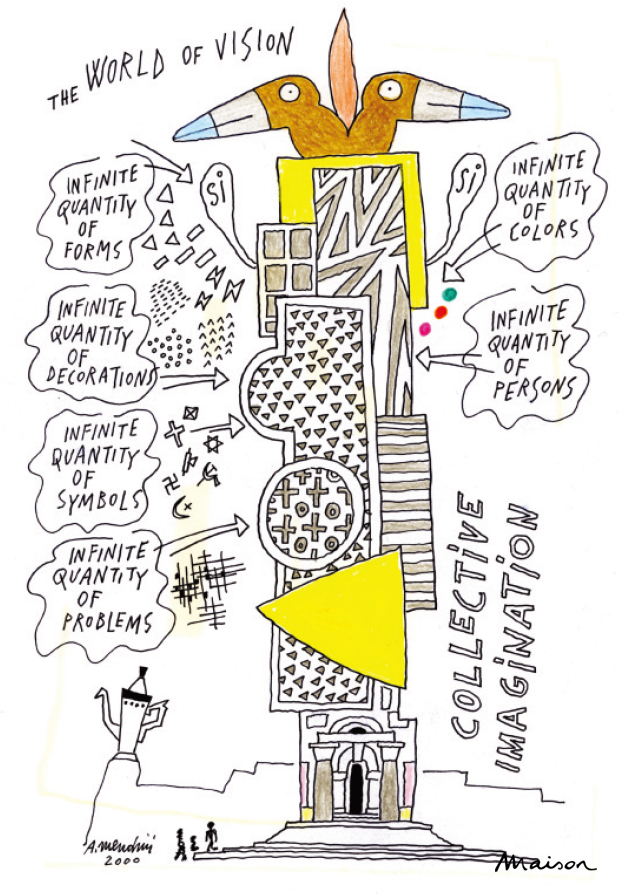 THE WORLD OF VISION
INFINITE
QUANTITY
OF
FORMS
Si
Si
INFINITE
QUANTITY
OF
COLORS
INFINITE
QUANTITY
OF
DECORATIONS
INFINITE
QUANTITY
OF
PERSONS
INFINITE
QUANTITY
OF
SYMBOLS
INFINITE
QUANTITY
OF
PROBLEMS
COLLECTIVE
IMAGINATION
A. Mendini
2000
Maison